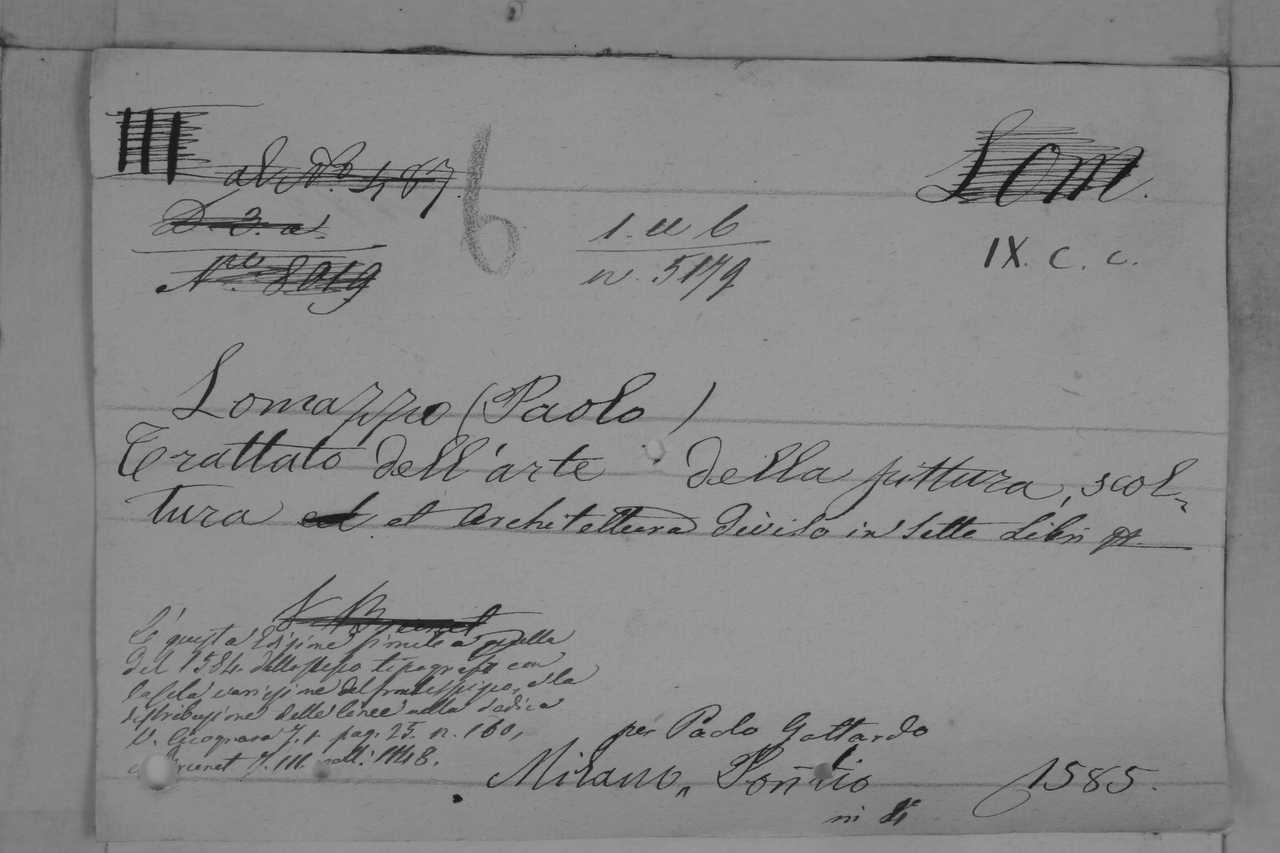 III
al N.o 487.
6
Lom.
D. 3. a
1. ee 6
N.ro 8019
n. 5179
IX. c. c.
Lomazzo (Paolo)
Trattato dell'arte della pittura, scol-
tura ed et Architettura diviso in sette Libri
V. Brunet
È questa edizione simile a quella
del 1584 dello stesso tipografo con
la sola variazione del frontispizio, e la
distribuzione delle linee nella dedica
V. Cicognara T. 1 pag. 25. n. 160,
e Brunet T. III. coll. 1148.
per Paolo Gottardo
Milano, Pontio 1585.
in